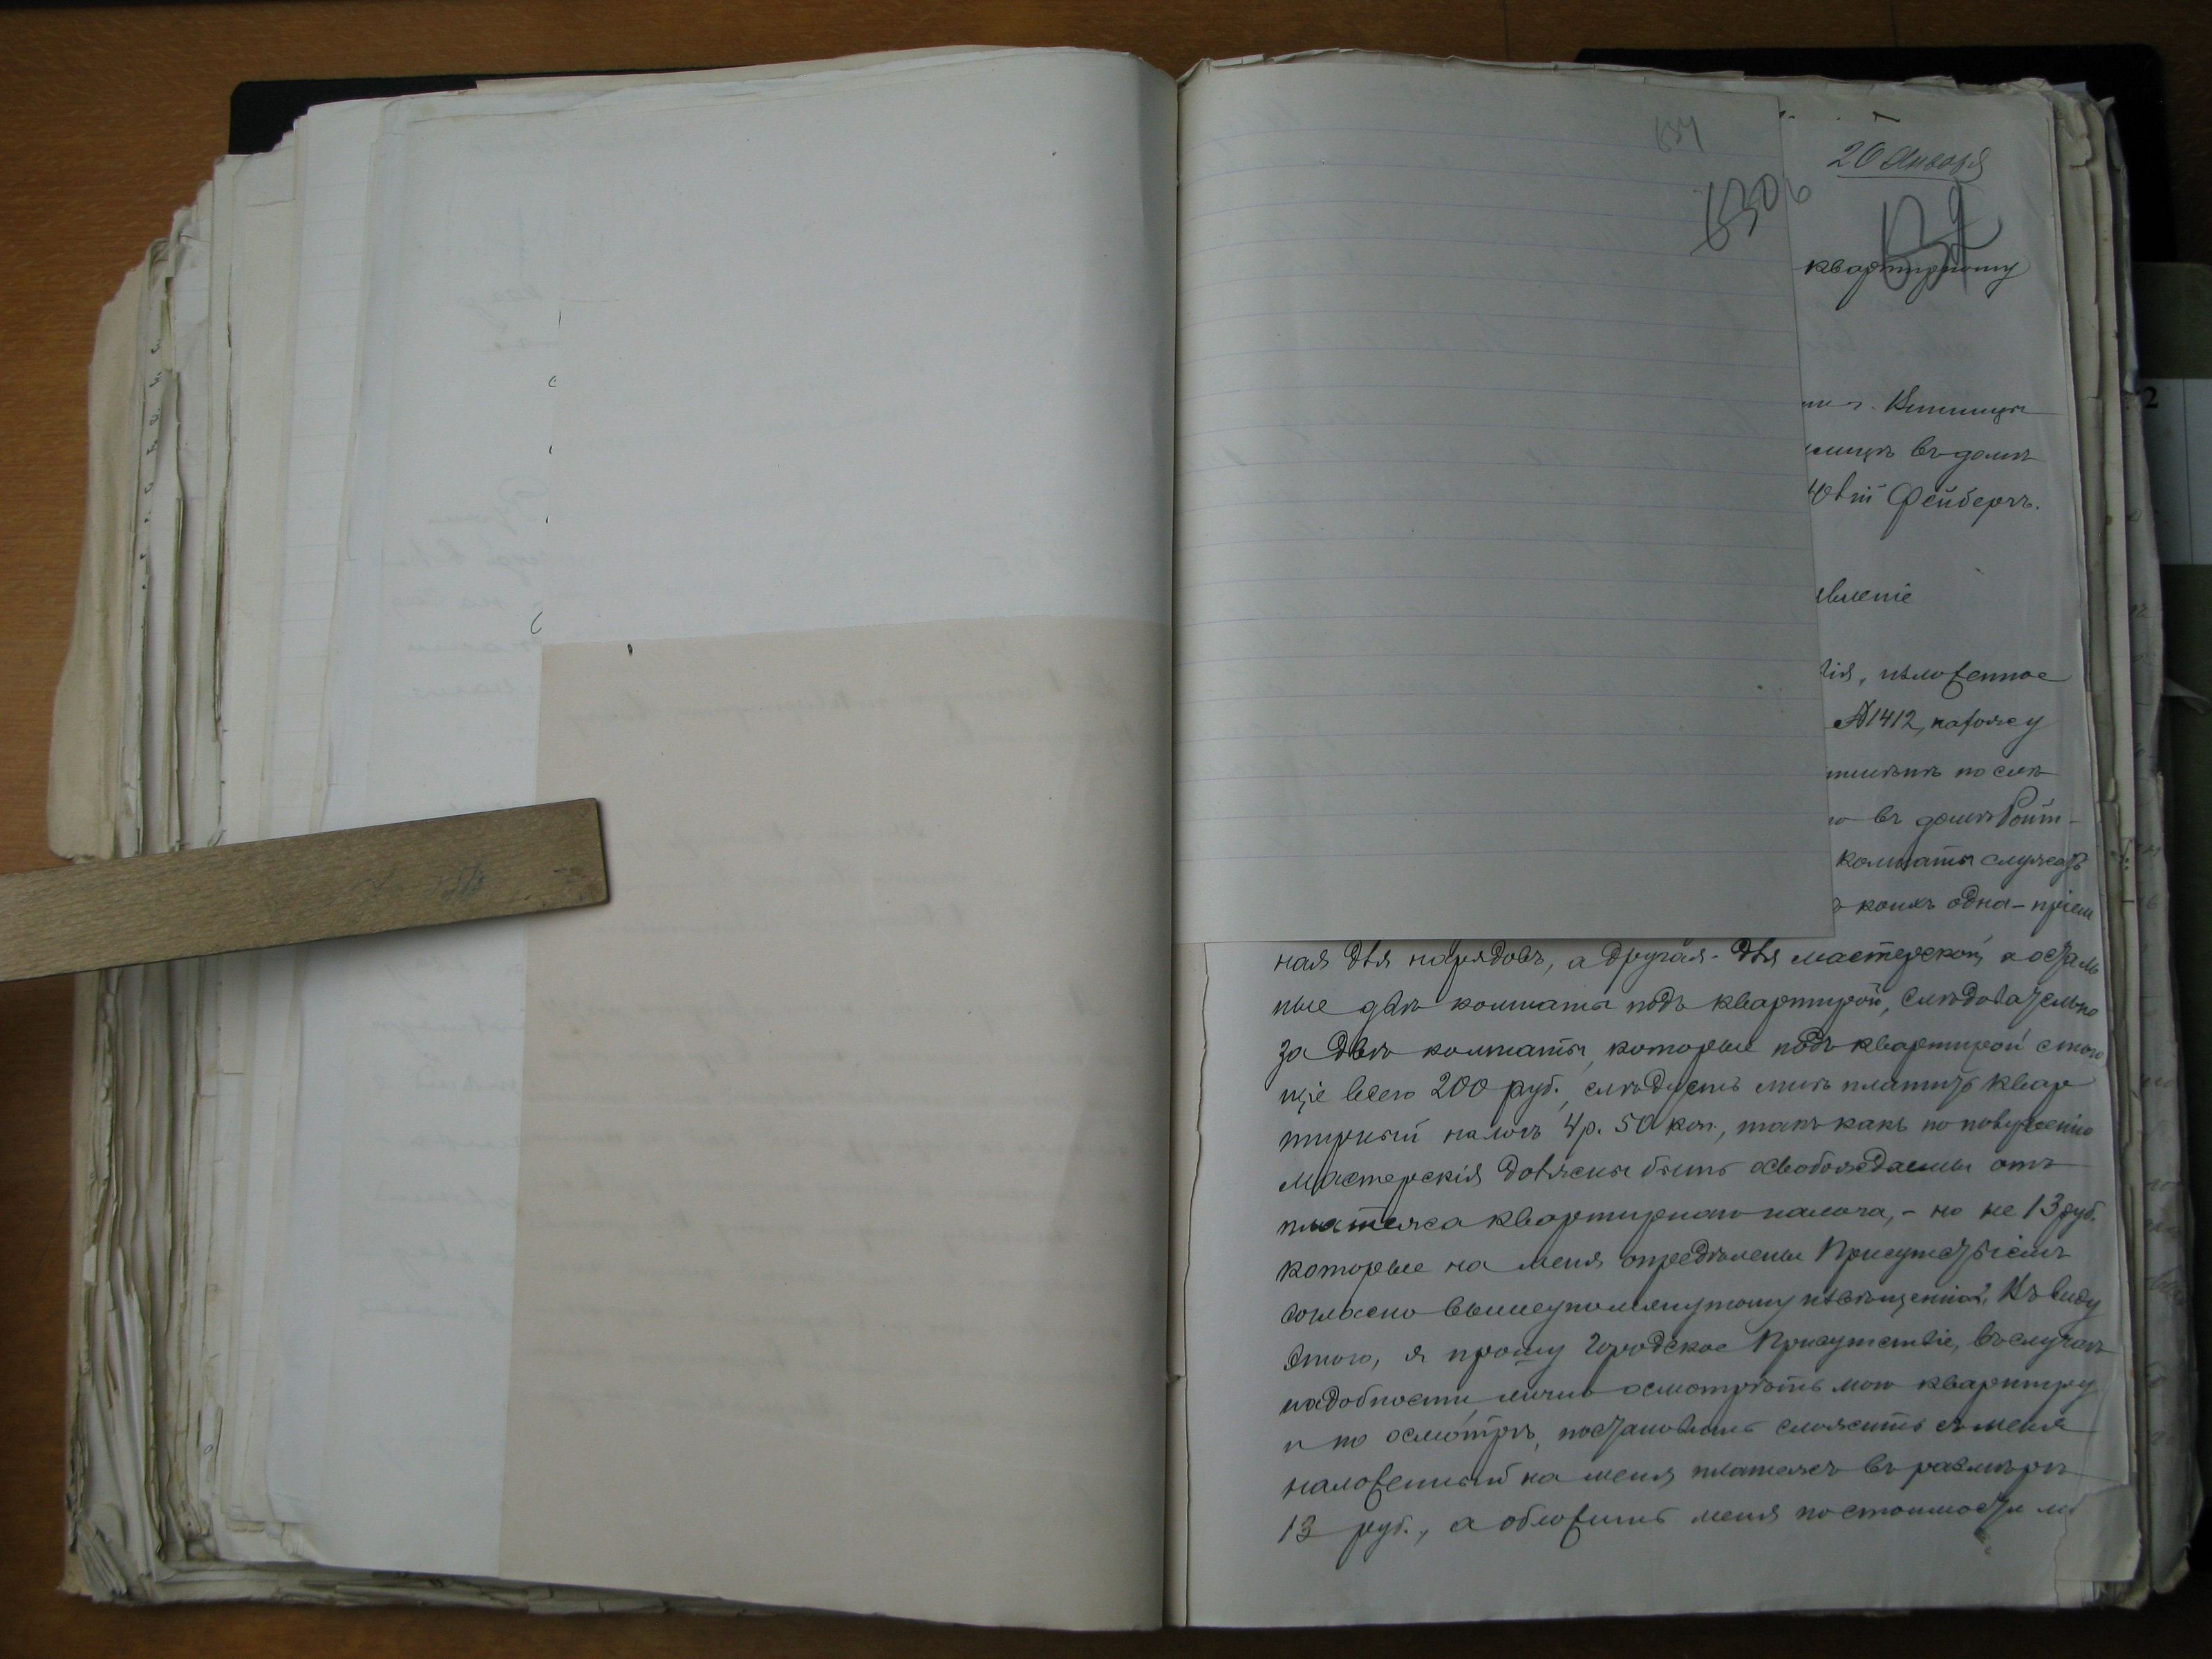 20 Января
квартирному
въ домѣ
Фейбергъ.
изложенное
№1412, нахожу
по смѣ
въ домѣ Ройт-
комнаты служатъ
коихъ одна - пріем
ная для нарядовъ, а другая - для мастерской, а осталь
ные двѣ комнаты подъ квартирой, слѣдовательно
за двѣ комнаты, которые подъ квартирой стою
щіе всего 200 руб., слѣдуетъ мнѣ платить квар
тирный налогъ 4 р. 50 коп., такъ какъ по
мастерскія должны быть освобождаемы отъ
платежа квартирнаго налога, - но не 13 руб.
которые на меня опредѣлены Присутствіемъ
согласно вышеупомянутому извѣщенію. Въ виду
этого, я прошу Городское Присутствіе, въ случаѣ
надобности лично осмотрѣть мою квартиру
и по осмотрѣ, постановить сложить съ меня
наложенный на меня платежъ въ размѣрѣ
13 руб., а обложить меня по стоимости